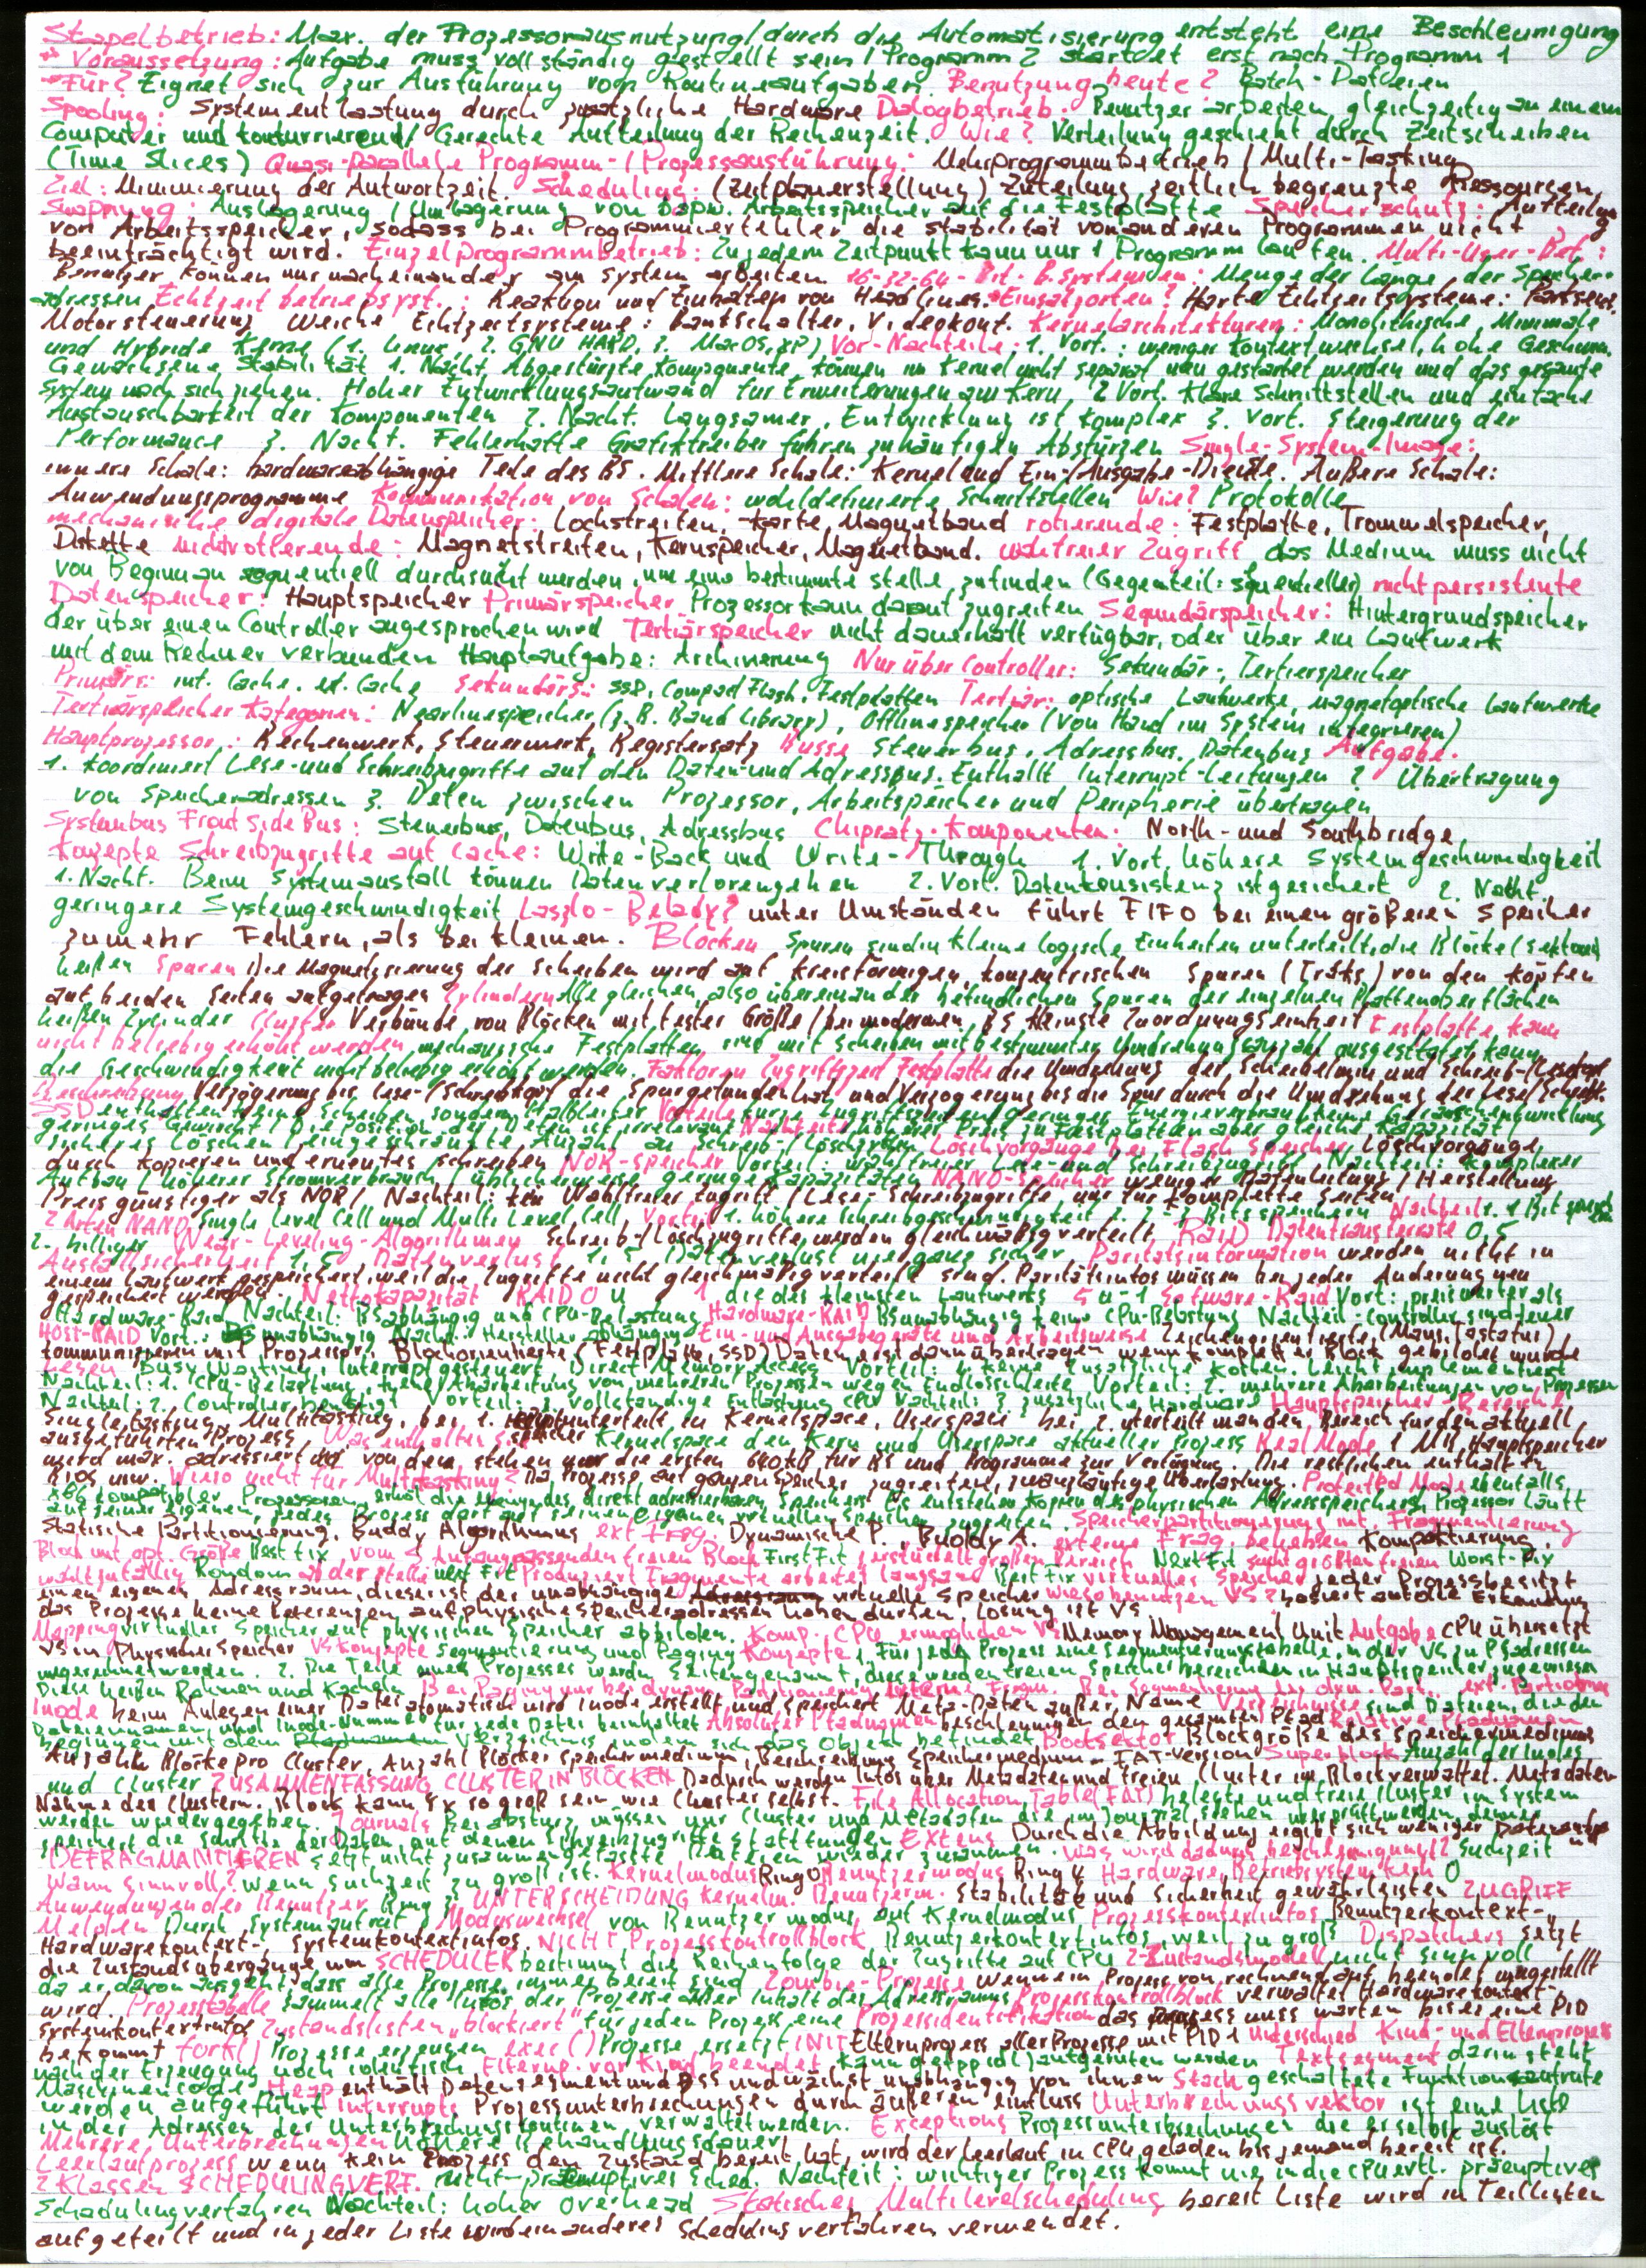 Stapelbetrieb: Max. der Prozessorausnutzung/durch die Automatisierung entsteht eine Beschleunigung
Voraussetzung: Aufgabe muss vollständig gestellt sein / Programm 2 startet erst nach Programm 1
Für? Eignet sich zur Ausführung von Routineaufgaben. Benutzung heute? Batch-Dateien
Spooling: Systementlastung durch zusätzliche Hardware Dialogbetrieb: Benutzer arbeiten gleichzeitig an einem
Computer und konkurrierend/ Gerechte Aufteilung der Rechenzeit. Wie? Verteilung geschieht durch Zeitscheiben
(Time Slices) Quasi-parallele Programm-/Prozessausführung: Mehrprogrammbetrieb / Multi-Tasking
Ziel: Minimierung der Antwortzeit. Scheduling: (Zeitplanerstellung) Zuteilung zeitlich begrenzte Ressourcen
Swapping: Auslagerung / Umlagerung von bspw. Arbeitsspeicher auf die Festplatte Speicherschutz: Aufteilung
von Arbeitsspeicher, sodass bei Programmierfehler die stabilität von anderen Programmen nicht
beeinträchtigt wird. Einzelprogrammbetrieb: Zu jedem Zeitpunkt kann nur 1 Programm laufen. Multi-User-Bet.:
Benutzer können nur nacheinander am System arbeiten. 16-32-64-Bit-B.systemen: Menge der Länge der Speicher-
adressen Echtzeitbetriebsyst.: Reaktion und Einhalten von Headlines. Einsatzorten? Harte Echtzeitsysteme:
Motorsteuerung Weiche Echtzeitsysteme: Bankschalter, Videokonf. Kernelarchitekturen: Monolithische, Minimale
und Hybride Kerne (1. Linux, 2. GNU HARD, 3. MacOS, XP) Vor-Nachteile: 1. Vort.: weniger Kontextwechsel, hohe Geschwin.
Gewachsene Stabilität 1. Nacht. Abgestürzte Komponente können im Kernel nicht separat neu gestartet werden und das gesamte
System nach sich ziehen. Hoher Entwicklungsaufwand für Erweiterungen am Kern, 2 Vort. Klare Schnittstellen und einfache
Austauschbarkeit der Komponenten 2. Nacht. Langsamer, Entwicklung ist komplex 3. Vort. Steigerung der
Performance 3. Nacht. Fehlerhafte Grafiktreiber führen zu häufigen Abstürzen Single-System-Image:
innere Schale: hardwareabhängige Teile des BS. Mittlere Schale: Kernel und Ein-/Ausgabe-Dienste. Äußere Schale:
Anwendungsprogramme Kommunikation von Schalen: wohldefinierte Schnittstellen Wie? Protokolle
mechanische digitale Datenspeicher: Lochstreifen, -karte, Magnetband rotierende: Festplatte, Trommelspeicher,
Diskette nichtrotierende: Magnetstreifen, Kernspeicher, Magnetband. wahlfreier Zugriff das Medium muss nicht
von Beginn an sequentiell durchsucht werden, um eine bestimmte stelle zufinden (Gegenteil: sequentieller) nicht persistente
Datenspeicher: Hauptspeicher Primärspeicher Prozessor kann darauf zugreifen Sequndärspeicher: Hintergrundspeicher
der über einen Controller angesprochen wird Tertiärspeicher nicht dauerhaft verfügbar, oder über ein Laufwerk
mit dem Rechner verbunden Hauptaufgabe: Archivierung Nur über Controller: Sekundär-, Tertierspeicher
Primärs: int. Cache, ext. Cache Sekundärs: SSD, Compact Flash, Festplatten Tertiär: optische Laufwerke, magnetoptische Laufwerke
Tertiärspeicher Kategorien: Nearlinespeicher (z.B. Band Library), Offlinespeicher (Von Hand im System integrieren)
Hauptprozessor: Rechenwerk, Steuerwerk, Registersatz Busse Steuerbus, Adressbus, Datenbus Aufgabe:
1. koordiniert Lese- und Schreibzugriffe auf den Daten- und Adressbus. Enthällt Interrupt-Leitungen 2. Übertragung
von Speicheradressen 3. Daten zwischen Prozessor, Arbeitspeicher und Peripherie übertragen
Systembus Front Side Bus: Steuerbus, Datenbus, Adressbus Chipsatz-Komponenten: North- und Southbridge
Konzepte Schreibzugriffe auf Cache: Write-Back und Write-Through 1. Vort. höhere Systemgeschwindigkeit
1. Nacht. Beim Systemausfall können Daten verlorengehen 2. Vort. Datenkonsistenz ist gesichert 2. Nacht.
geringere Systemgeschwindigkeit Laszlo-Belady? unter Umständen führt FIFO bei einen größeren Speicher
zu mehr Fehlern, als bei kleinen. Blöcken Spuren sind in kleine logische Einheiten unterteilt, die Blöcke (Sektoren)
heißen Spuren Die Magnetisierung der Scheiben wird auf kreisförmigen, konzentrischen Spuren (Traks) von den Köpfen
auf beiden Seiten aufgetragen Zylindern Alle gleichen, also übereinander befindlichen Spuren der einzelnen Plattenoberflächen
heißen Zylinder Cluster Verbünde von Blöcken mit fester Größe / bei modernen BS kleinste Zuordnungseinheit Festplatte kann
nicht beliebig erhöht werden mechanische Festplatten sind mit Scheiben mit bestimmter Umdrehungsanzahl ausgestattet kann
die Geschwindigkeit nicht beliebig erhöht werden. Faktoren Zugriffszeit Festplatte die Umdrehung der Scheiben und Schreib-/Lesekopf
Beschreibung Verzögerung bis Lese-/Schreibkopf die Spur gefunden hat und Verzögerung bis die Spur durch die Umdrehung der Lese/Schreibk.
SSD enthalten keine Scheiben, sondern Halbleiter Vorteile kurze Zugriffszeiten/Geringer Energieverbrauch/keine Geräuschentwicklung
geringes Gewicht / Die Position der Daten ist irrelevant Nachteile höherer Preis zu Festplatten aber gleiche Kapazität
sicheres Löschen / eingeschränkte Anzahl an Schreib-/Löschzyklen Löschvorgänge bei Flash Speicher Löschvorgänge
durch kopieren und erneutes schreiben NOR-Speicher Vorteil: wahlfreier Lese- und Schreibzugriff Nachteil: komplexer
Aufbau / höherer Stromverbrauch / üblicherweise geringe Kapazitäten NAND-Speicher weniger Datenleitung / Herstellung
Preisgünstiger als NOR / Nachteil: kein Wahlfreier Zugriff / Lese-Schreibzugriffe nur für komplette Seiten
2 Arten NAND Single Level Cell und Multi Level Cell Vorteil 1. höhere Schreibgeschwindigkeit 2. 2-3 Bits speichern Nachteil: 1. 1 Bit speichern
2. billiger Wear-Leveling-Algorithmen Schreib-/Löschzugriffe werden gleichmäßig verteilt, RAID Datentransferrate 0,5
Ausfallsicherheit 1,5 Datenverlust 1,5 Datenverlust nie ganz sicher Paritätsinformation werden nicht in
einem Laufwerk gespeichert, weil die Zugriffe nicht gleichmäßig verteilt sind. Paritätsinfos müssen bei jeder Änderung neu
gespeichert werden. Nettokapazität RAID 0 n 1 die des kleinsten Laufwerks 5 n-1 Software-Raid Vort: preiswerter als
Hardware-Raid Nachteil: BS abhängig und CPU-Belastung Hardware-RAID BS unabhängig keine CPU-Belastung Nachteil: Controller sind teuer
HOST-RAID Vort.: BS unabhängig Nacht.: Hersteller abhängig Ein- und Ausgabegeräte und Arbeitsweise Zeichenorientierte (Maus, Tastatur)
kommunizieren mit Prozessor. Blockorientierte (Festplatte, SSD) Daten erst dann übertragen wenn kompletter Block gebildet wurde
Lesen Busy Waiting, Interrupt gesteuert, Direct Memory Access Vorteil: 1. keine zusätzliche Kosten
Nachteil: 1. CPU-Belastung, Abarbeitung von mehreren Prozessen wegen Endlosschleife Vorteil: 2. mehrere Abarbeitungen von Prozessen
Nachteil: 2. Controller benötigt Vorteil: 3. vollständige Entlastung CPU Nachteil: 3. zusätzliche Hardware Hauptspeicher-Bereiche
Singletasking, Multitasking, bei 1. unterteilt in Kernelspace, Userspace bei 2. unterteilt man den Bereich für den aktuell
ausgeführten Prozess Was enthalten sie Kernelspace den Kern und Userspace aktueller Prozess Real Mode 1 MB Hauptspeicher
wird max. adressiert von dem stehen nur die ersten 640kB für BS und Programme zur Verfügung. Die restlichen enthalten
BIOS usw. Wieso nicht für Multitasking? Da Prozesse auf ganzen Speicher zugreifen, Überlastung. Protected Mode ebenfalls
x86 kompatibler Prozessoren, erhöt die Menge des direkt adressierbaren Speichers Prozessor läuft
auf seiner eigenen, jeder Prozess darf auf seinen eigenen virtuellen Speicher zugreifen. Speicherpartitionierung int. Fragmentierung
Statische Partitionierung, Buddy Algorithmus ext Frag. Dynamische P., Buddy A. externe Frag. beheben Kompaktierung
Block mit opt. Größe Best fix vom Anfang passenden freien Block First Fit zerstückelt großen Bereich Next Fit sucht größten freien Worst-Fix
wählt zufällig Random ab der Stelle next Fit Produziert Fragmente arbeitet langsam Best Fix virtuelles Speicher jeder Prozess besitzt
einen eigenen Adressraum, dieser ist der unabhängige virtuelle Speicher wieso benutzen VS? basiert auf die Erkenntnis
das Prozesse keine Referenzen auf physische Speicheradressen haben dürfen, Lösung ist VS
Mapping virtueller Speicher auf physischen Speicher abbilden. Komp. CPU ermöglichen VS Memory Management Unit Aufgabe CPU übersetzt
VS in Physischer Speicher VS Konzepte Segmentierung und Paging Konzepte 1. Für jede Prozess eine Segmentierungstabelle, in der VS zu PS adressen
umgerechnet werden. 2. Die Teile eines Prozesses werden Seiten genannt, diese werden freien Speicherbereichen in Hauptspeicher zugewiesen
Diese heißen Rahmen und Kacheln Bei Paging nur bei dynam. Partitionierung interne Fragm. Bei Segmentierung
Inode beim Anlegen einer Datei atomatisch wird Inode erstellt und speichert Meta-Daten außer Name Verzeichnisse sind Dateien, die den
Dateiennamen und Inode-Nummer für jede Datei beinhaltet Absoluter Pfadnamen beschleunigen den gesamten Pfad Relative Pfadnamen
beginnen mit dem Verzeichnis in dem sich das Objekt befindet Bootsektor Blockgröße des Speichermediums
Anzahl Blöcke pro Cluster, Anzahl Blöcke Speichermedium, Beschreibung Speichermedium - FAT-Version Superblock Anzahl der Inodes
und Cluster ZUSAMMENFASSUNG CLUSTER IN BLÖCKEN Dadurch werden Infos über Metadaten und freien Cluster im Block verwaltet. Metadaten
Nähme den Clustern. Block kann 8x so groß sein wie Cluster selbst. File Allocation Table (FAT) belegte und freie Cluster im System
werden wiedergegeben. Journals Bei absturz müssen nur Cluster und Metadaten die im Journal stehen überprüft werden, denn er
speichert die Schritte der Daten auf denen Schreibzugriffe stattfinden Extens Durch die Abbildung ergibt sich weniger
DEFRAGMANTIEREN setzt nicht zusammengefasste Dateien wieder zusammen. Was wird dadurch beschleunigung? Suchzeit
Wann sinnvoll? wenn Suchzeit zu groß ist. Kernelmodus Ring 0 Benutzermodus Ring 4 Hardware, Betriebsystemkern 0
Anwendungen der Benutzer Ring 3 UNTERSCHEIDUNG Kernelm. Benutzerm. Stabilität und Sicherheit gewährleisten ZUGRIFF
Helpen Durch Systemaufruf Moduswechsel von Benutzermodus auf Kernelmodus Prozesskontextinfos Benutzerkontext-,
Hardwarekontext-, Systemkontextinfos. NICHT Prozesskontrollblock Benutzerkontextinfos, weil zu groß Dispatchers setzt
die Zustandsübergänge um SCHEDULER bestimmt die Reihenfolge der Zugriffe auf CPU 2-Zustandsmodell nicht sinnvoll
da er davon ausgeht, dass alle Prozesse immer bereit sind Zombie-Prozesse wenn ein Prozess von rechnend auf beendet umgestellt
wird. Prozesstabelle sammelt alle Infos der Prozesse außer Inhalt des Adressraums Prozesskontrollblock verwaltet Hardwarekontext-
Systemkontextinfos Zustandslisten „blockiert" für jeden Prozess eine Prozessidentifikation das muss warten bis er eine PID
bekommt fork() Prozesse erzeugen exec() Prozesse ersetzt INIT Elternprozess aller Prozesse mit PID 1 Unterschied Kind- und Elternprozess
nach der Erzeugung noch identisch Elternp. vor Kind beendet kann getppid() aufgerufen werden Textsegment darin steht
Maschinencode Heap enthält Datensegment und BSS und wächst unabhängig von ihnen Stack geschaltete Funktionsaufrufe
werden aufgeführt Interrupts Prozessunterbrechungen durch äußeren einfluss Unterbrechungsvektor ist eine Liste
in der Adressen der Unterbrechungsroutinen verwaltet werden. Exceptions Prozessunterbrechungen die er selbst auslöst
Mehrere Unterbrechungen höhere Behandlungsdauer
Leerlaufprozess wenn kein Prozess den Zustand bereit hat, wird der Leerlauf in CPU geladen bis jemand bereit ist.
2 Klassen SCHEDULINGVERF. nicht-präemptives Sched. Nachteil: wichtiger Prozess kommt nie in die CPU evtl. präemptives
Schedulingverfahren Nachteil: hoher Overhead Statisches Multilevelscheduling bereit Liste wird in Teillisten
aufgeteilt und in jeder Liste wird ein anderes Schedulingsverfahren verwendet.